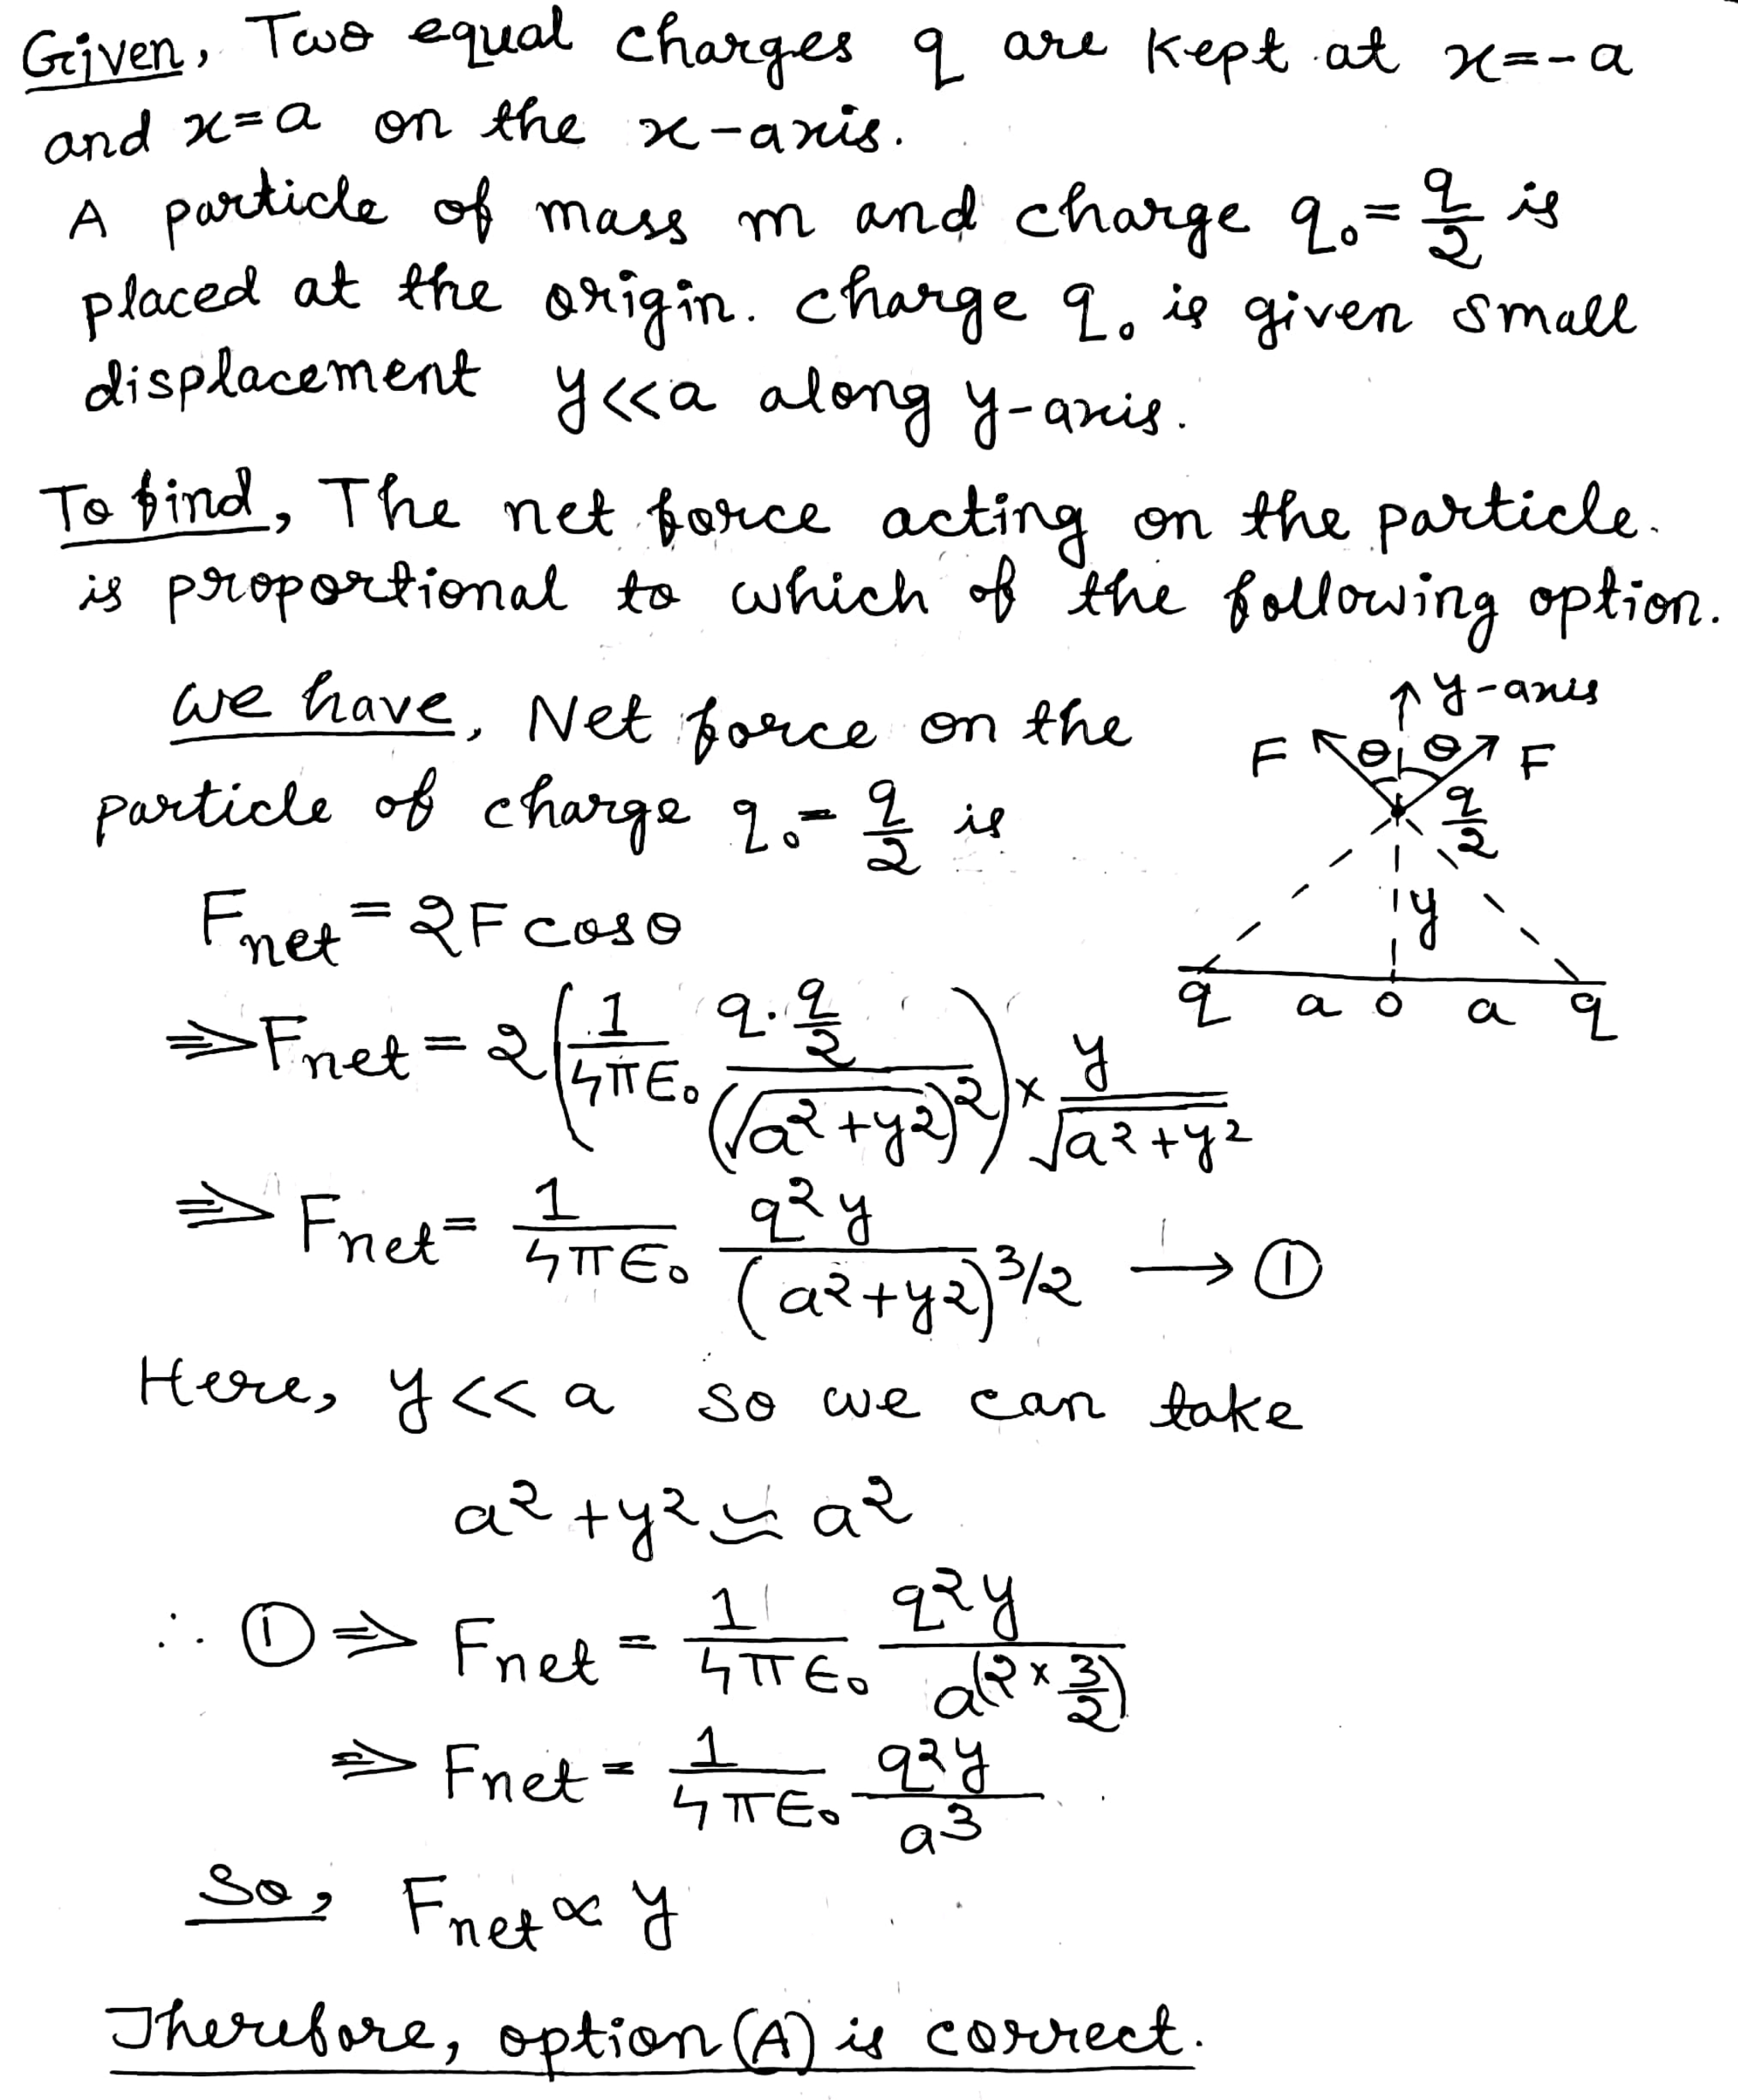 Given, Two equal charges q are kept at x=-a
and x=a on the x-axis.
A particle of mass m and charge q₀ = q/2 is
placed at the origin. charge q₀ is given small
displacement y<<a along y-axis.
To find, The net force acting on the particle.
is proportional to which of the following option.
We have, Net force on the
particle of charge q₀ = q/2 is
Fnet = 2F cosθ
⇒ Fnet = 2(1/4πϵ₀ q·q/2/(√a²+y²)²) × y/√a²+y²
⇒ Fnet = 1/4πϵ₀ q²y/(a²+y²)^3/2 → ①
↑ y-axis
F θ θ F
q/2
y
q a o a q
Here, y<<a so we can take
a²+y² ≃ a²
∴ ① ⇒ Fnet = 1/4πϵ₀ q²y/a^(2×3/2)
⇒ Fnet = 1/4πϵ₀ q²y/a³.
So, Fnet ∝ y
Therefore, option (A) is correct.